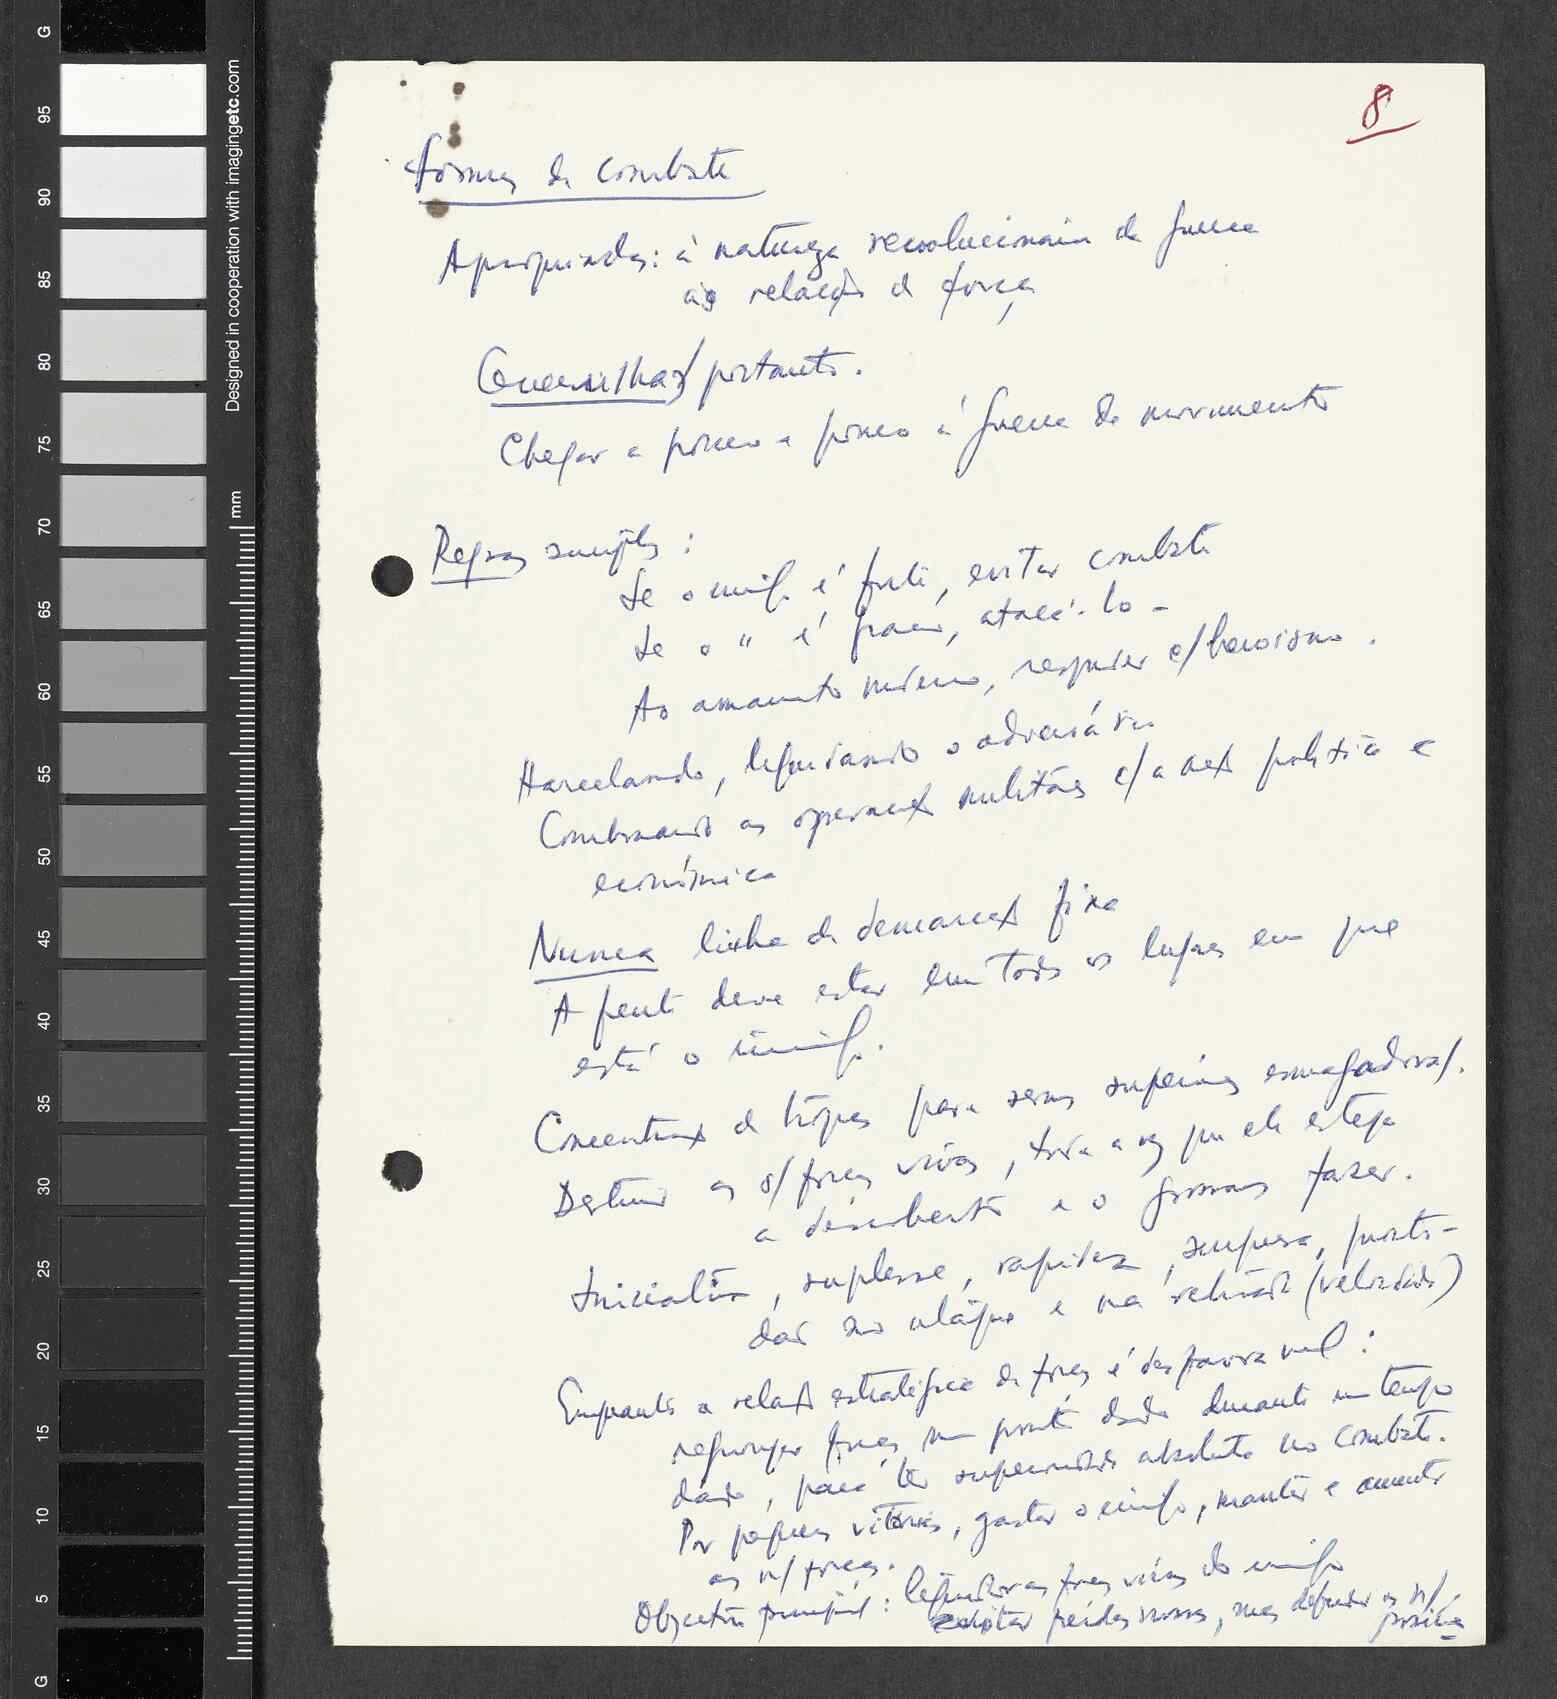 8
Formas de combate
Apropriadas: à natureza revolucionária da guerra
às relações de forças
Guerrilhas, portanto.
Chegar a pouco e pouco à guerra de movimento
Regras simples:
Se o inimigo é forte, evitar combate
Se o " é fraco, atacá-lo -
Ao armamento moderno, responder c/ heroísmo.
Harcelando, liquidando o adversário
Combinando as operações militares c/ a acção política e
económica
Nunca linha de demarcação fixa
A frente deve estar em todos os lugares em que
está o inimigo.
Concentração de tropas para sermos superiores
Destruir as s/ forças vivas, toda a vez que ele esteja
a descoberto e o possamos fazer.
Iniciativa, suplesse, rapidez, surpresa,
no ataque e na retirada (velocidade)
Enquanto a relação estratégica de forças é desfavorável:
reagrupar forças num ponto dado durante um tempo
dado, para ter superioridade absoluta no combate.
Por pequenas vitórias, gastar o inimigo, manter e aumentar
as n/ forças.
Objectivo principal: liquidar as forças vivas do inimigo
evitar perdas nossas, mas defender as n/
posições
G
95
90
85
80
75
70
65
60
55
50
45
40
35
30
25
20
15
10
5
G
Designed in cooperation with imagingetc.com
mm